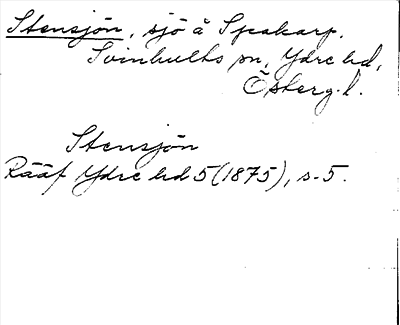 Stensjön, sjö å Spakarp.
Svinhults sn, Ydre hd,
Österg.l.
Stensjön
Rääf Ydre hd 5 (1875), s. 5.